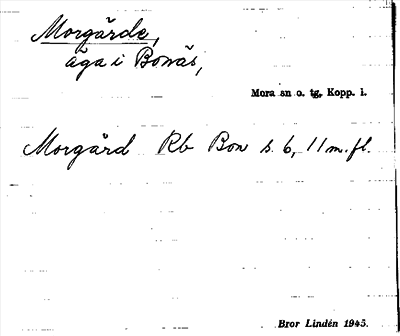 Morgårde,
äga i Bonäs,
Mora sn o. tg, Kopp. l.
Morgård Rb Bon s. 6, 11 m. fl.
Bror Lindén 1945.